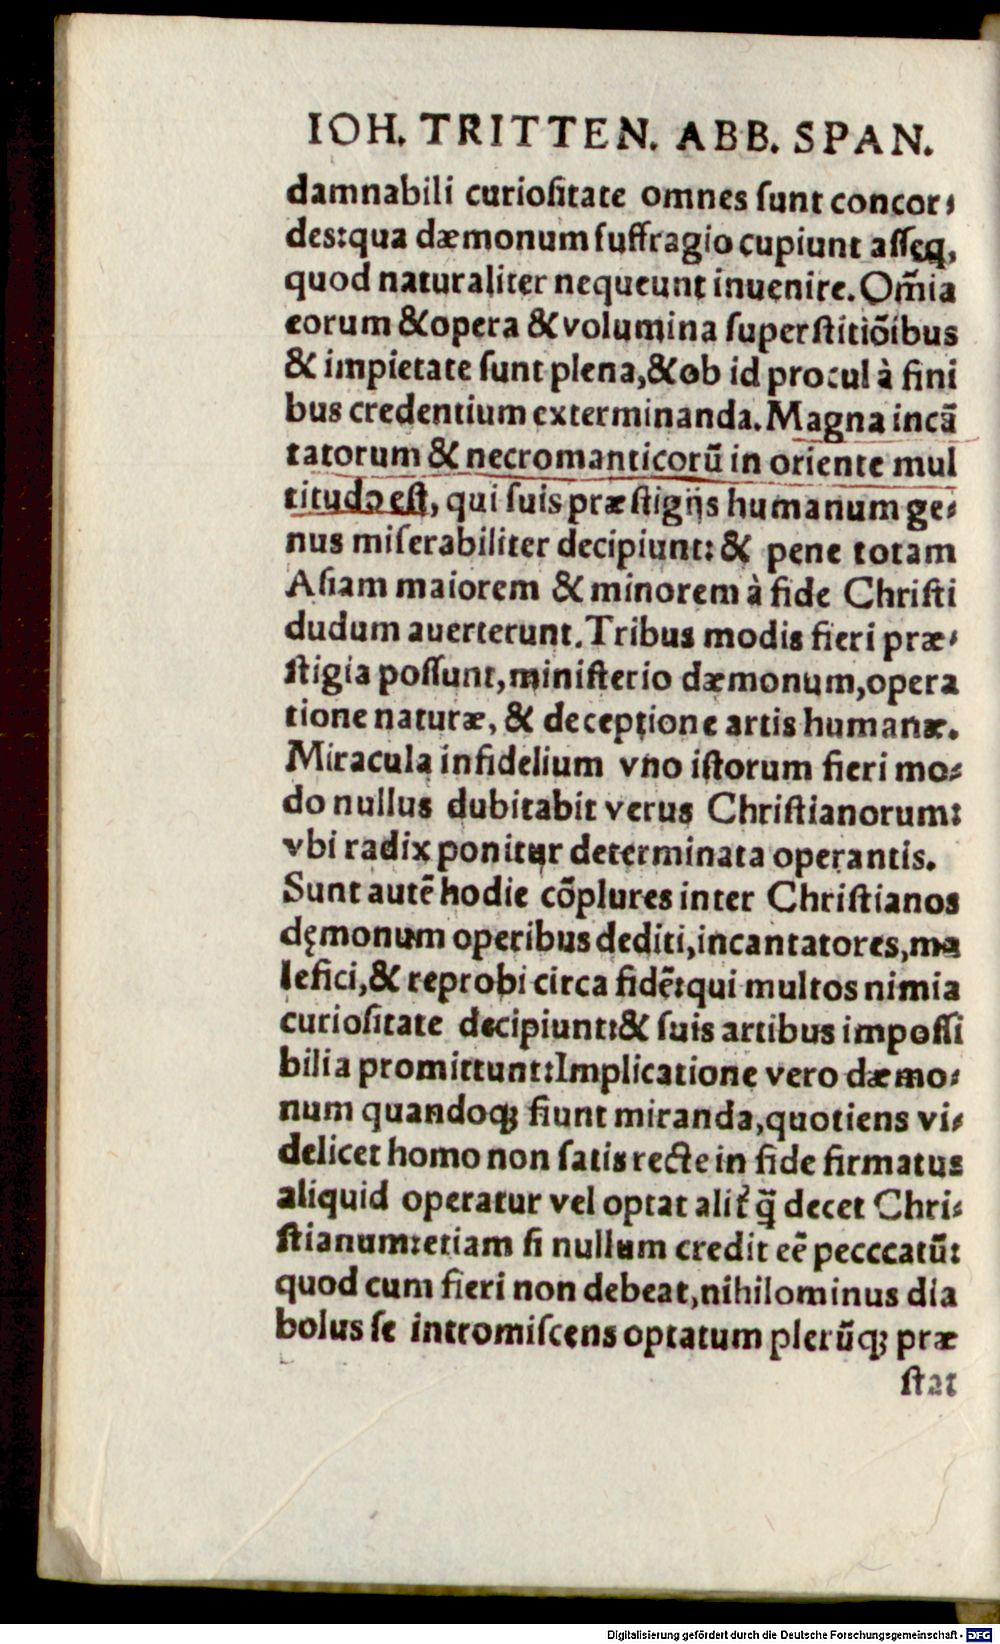 IOH. TRITTEN. ABB. SPAN.
damnabili curioſitate omnes ſunt concor⸗
des:qua dæmonum ſuffragio cupiunt aſſeq,
quod naturaliter nequeunt inuenire. Om̃ia
eorum & opera & volumina ſuperſtitiõibus
& impietate ſunt plena,& ob id procul à fini
bus credentium exterminanda. Magna incã
tatorum & necromanticorũ in oriente mul
titudo eſt, qui ſuis præſtigijs humanum ge⸗
nus miſerabiliter decipiunt: & pene totam
Aſiam maiorem & minorem à fide Chriſti
dudum auerterunt. Tribus modis fieri præ⸗
ſtigia poſſunt, miniſterio dæmonum, opera
tione naturæ, & deceptione artis humanæ.
Miracula infidelium vno iſtorum fieri mo⸗
do nullus dubitabit verus Chriſtianorum:
vbi radix ponitur determinata operantis.
Sunt autẽ hodie cõplures inter Chriſtianos
dęmonum operibus dediti, incantatores, ma
lefici, & reprobi circa fidẽ: qui multos nimia
curioſitate decipiunt: & ſuis artibus impoſſi
bilia promittunt: Implicatione vero dæmo⸗
num quandoq; fiunt miranda, quotiens vi⸗
delicet homo non ſatis recte in fide firmatus
aliquid operatur vel optat alit̉ q̃ decet Chri⸗
ſtianum: etiam ſi nullum credit eẽ pecccatũ:
quod cum fieri non debeat, nihilominus dia
bolus ſe intromiſcens optatum plerũq; præ
ſtat
Digitalisierung gefördert durch die Deutsche Forschungsgemeinschaft - DFG